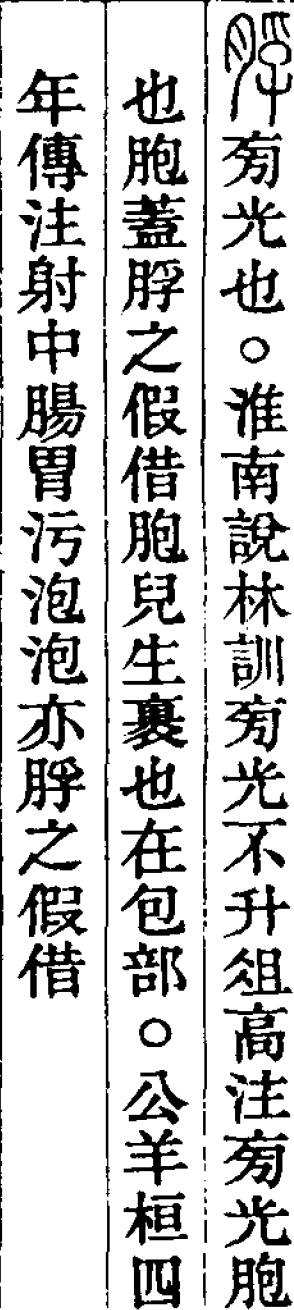 脬㫄光也。淮南說林訓㫄光不升俎高注㫄光胞
也胞蓋脬之假借胞兒生裹也在包部。公羊桓四
年傳注射中腸胃污泡泡亦脬之假借